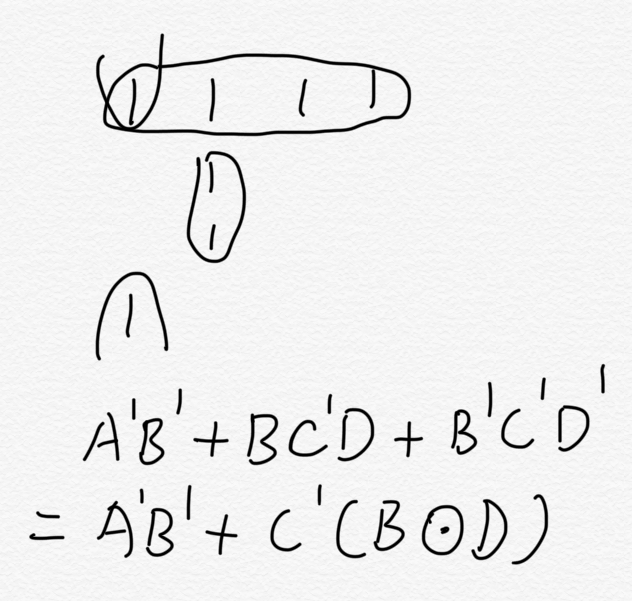 1 1 1 1
1
1
1
A'B' + BC'D + B'C'D'
= A'B' + C'(B⊙D)